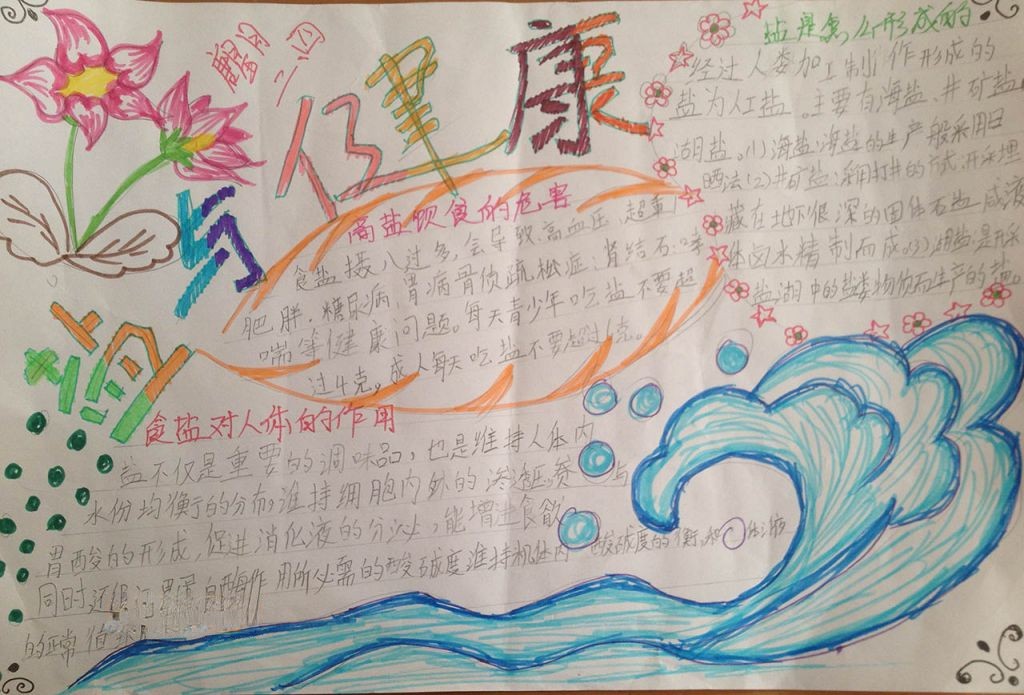 盐与健康
二（四）
高盐饮食的危害
食盐摄入过多，会导致高血压 超重
肥胖，糖尿病，胃病骨质疏松症，肾结石，哮
喘等健康问题。每天青少年吃盐不要超
过4克。成人每天吃盐不要超过6克。
盐是怎么形成的
经过人类加工制作形成的
盐为人工盐。主要有海盐、井矿盐、
湖盐。(1)海盐：海盐的生产般采用日
晒法(2)井矿盐：采用打井的方式，开采埋
藏在地下很深的固体石盐或液
体卤水精制而成。(3)湖盐是开采
盐湖中的盐类物质而生产的盐。
食盐对人体的作用
盐不仅是重要的调味品，也是维持人体内
水份均衡的分布，维持细胞内外的渗透压，参与
胃酸的形成，促进消化液的分泌，能增进食欲
同时还 酶作用所必需的酸碱度维持机体内 酸碱度的衡和 体液
的正常循环